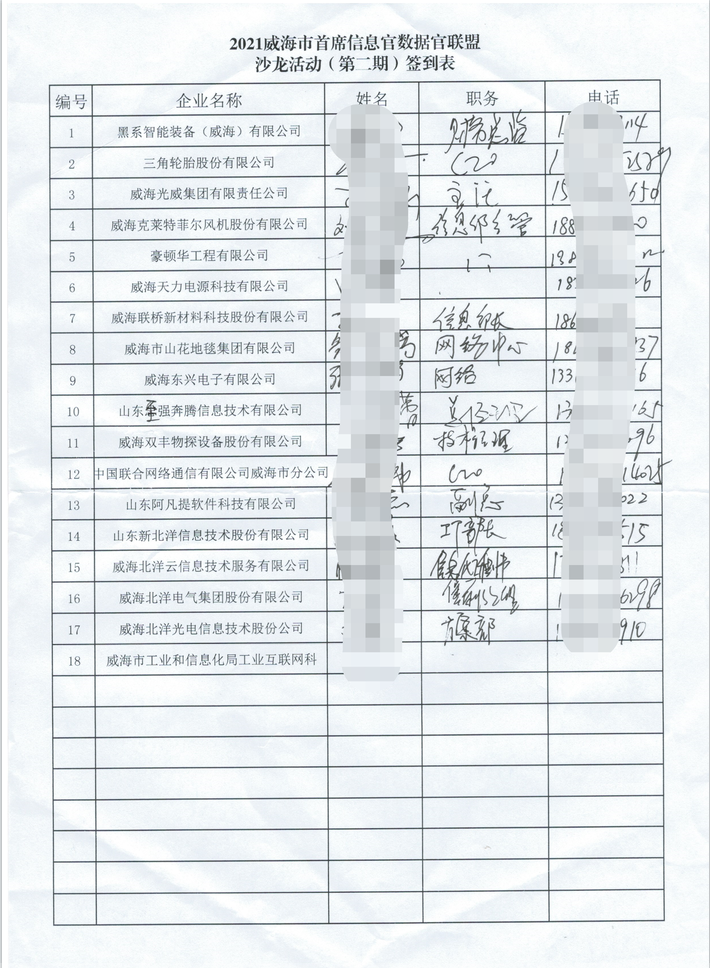 2021威海市首席信息官数据官联盟
沙龙活动（第二期）签到表
编号 企业名称 姓名 职务 电话
1 黑系智能装备（威海）有限公司 财务总监
2 三角轮胎股份有限公司 CIO
3 威海光威集团有限责任公司 主任
4 威海克莱特菲尔风机股份有限公司 信息部主管 188
5 豪顿华工程有限公司 138
6 威海天力电源科技有限公司 18
7 威海联桥新材料科技股份有限公司 信息部长 186
8 威海市山花地毯集团有限公司 网络中心 18 37
9 威海东兴电子有限公司 网络 133 6
10 山东至强奔腾信息技术有限公司 总经理 13 165
11 威海双丰物探设备股份有限公司 技术经理 96
12 中国联合网络通信有限公司威海市分公司 CIO 14025
13 山东阿凡提软件科技有限公司 副总 13 022
14 山东新北洋信息技术股份有限公司 IT部长 18 515
15 威海北洋云信息技术服务有限公司
16 威海北洋电气集团股份有限公司 6298
17 威海北洋光电信息技术股份公司 方案部 910
18 威海市工业和信息化局工业互联网科